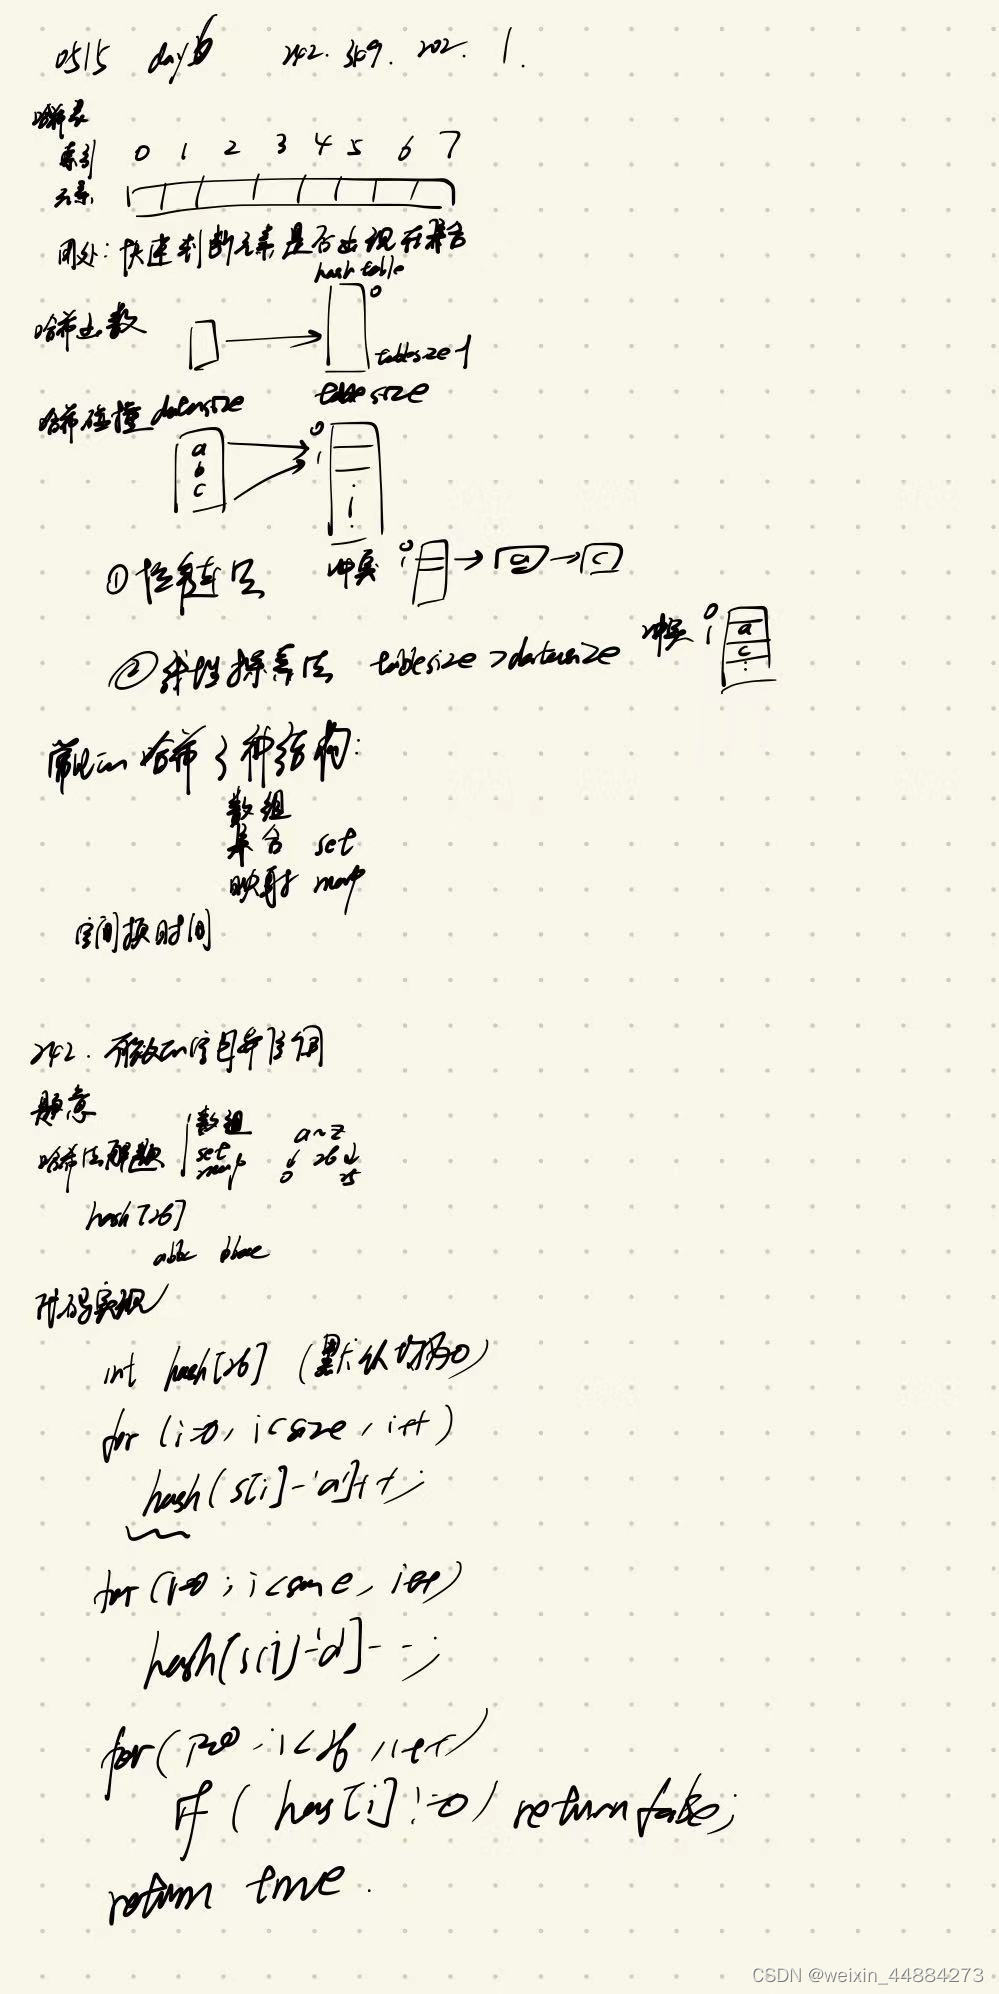 0515 day6 242. 349. 202. 1.
哈希表
索引 0 1 2 3 4 5 6 7
元素
用处: 快速判断元素是否出现在集合
hash table
0
哈希函数
tablesize-1
哈希碰撞 datasize tablesize
a 0
b 1
c
① 拉链法 冲突 0 1 a c
② 线性探寻法 tablesize > datasize 冲突 0 1 a c
常见的哈希3种结构:
数组
集合 set
映射 map
空间换时间
242. 有效的字母异位词
题意
哈希法解题 数组 set map a~z 0 26 25
hash[26]
abbc bbae
代码实现
int hash[26] (默认均为0)
for (i=0, i<size, i++)
hash(s[i]-'a']++;
for (i=0; i<size, i++)
hash[s[i]-'a']--;
for(i=0; i<26, i++)
if ( has[i] !=0) return false;
return true.
CSDN @weixin_44884273